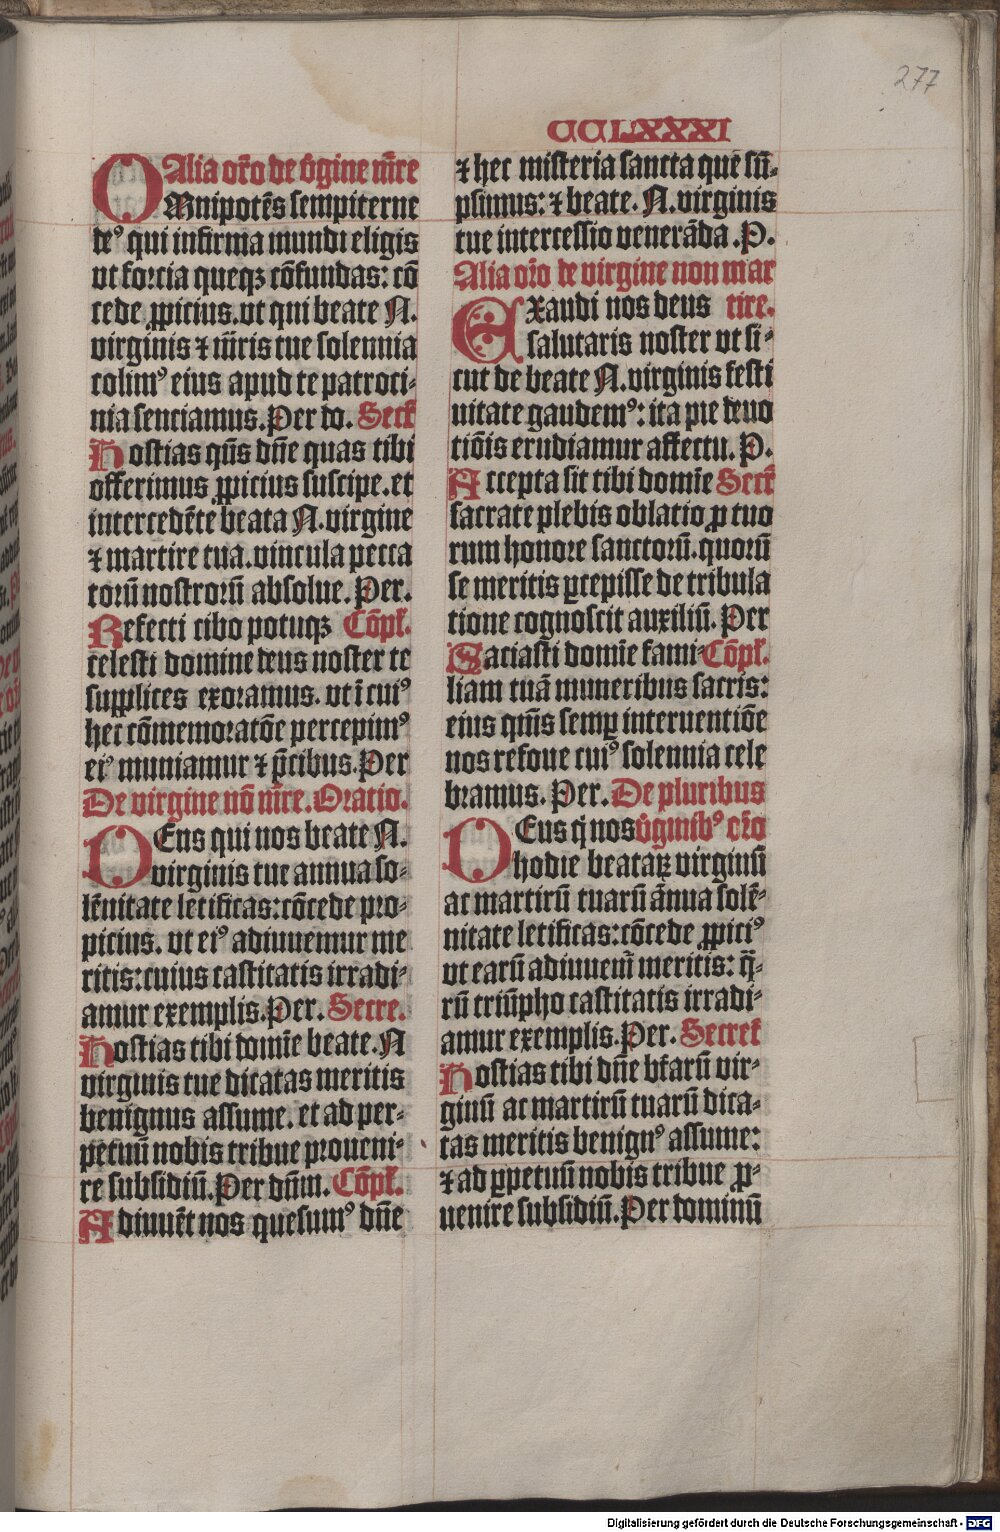 277
CCLXXXI
Alia or̃o de v̓gine m̃re
OMnipotẽs sempiterne
deꝰ qui infirma mundi eligis
vt forcia queqꝫ cõfundas: cõ
cede ꝓpicius. vt qui beate N.
virginis ⁊ m̃ris tue solennia
colimꝰ eius apud te patroci-
nia senciamus. Per do. Secr̃
Hostias qũs dñe quas tibi
offerimus ꝓpicius suscipe. et
intercedẽte beata N. virgine
⁊ martire tua. vincula pecca
torũ nostrorũ absolue. Per.
Refecti cibo potuqꝫ Cõpl̃.
celesti domine deus noster te
supplices exoramus. vt ĩ cuiꝰ
hec cõmemoratõe percepimꝰ
eiꝰ muniamur ⁊ p̃cibus. Per
De virgine nõ m̃re. Oratio.
DEus qui nos beate N.
virginis tue annua so-
lẽnitate letificas: cõcede pro-
picius. vt eiꝰ adiuuemur me
ritis: cuius castitatis irradi-
amur exemplis. Per. Secre.
Hostias tibi domĩe beate. N
virginis tue dicatas meritis
benignus assume. et ad per-
petuũ nobis tribue proueni-
re subsidiũ. Per dñm. Cõpl̃.
Adiuuẽt nos quesumꝰ dñe
⁊ hec misteria sancta que sũ-
psimus: ⁊ beate. N. virginis
tue intercessio venerãda. P.
Alia or̃o de virgine non mar
Exaudi nos deus tire.
salutaris noster vt si-
cut de beate N. virginis festi
uitate gaudemꝰ: ita pie deuo
tiõis erudiamur affectu. P.
Accepta sit tibi domĩe Secr̃
sacrate plebis oblatio ꝓ tuo
rum honore sanctorũ. quorũ
se meritis ꝑcepisse de tribula
tione cognoscit auxiliũ. Per
Saciasti domĩe fami- Cõpl̃.
liam tuã muneribus sacris:
eius qm̃s semꝑ interuentiõe
nos refoue cuiꝰ solennia cele
bramus. Per. De pluribus
DEus q̃ nos v̓ginibꝰ or̃o
hodie beataꝝ virginũ
ac martirũ tuarũ ãnua solẽ-
nitate letificas: cõcede ꝓpiciꝰ
vt earũ adiuuem̃ meritis: q̃-
rũ triũpho castitatis irradi-
amur exemplis. Per. Secret̃
Hostias tibi dñe bt̃arũ vir-
ginũ ac martirũ tuarũ dica-
tas meritis benignꝰ assume:
⁊ ad ꝑpetuũ nobis tribue ꝓ-
uenire subsidiũ. Per dominũ
Digitalisierung gefördert durch die Deutsche Forschungsgemeinschaft - DFG